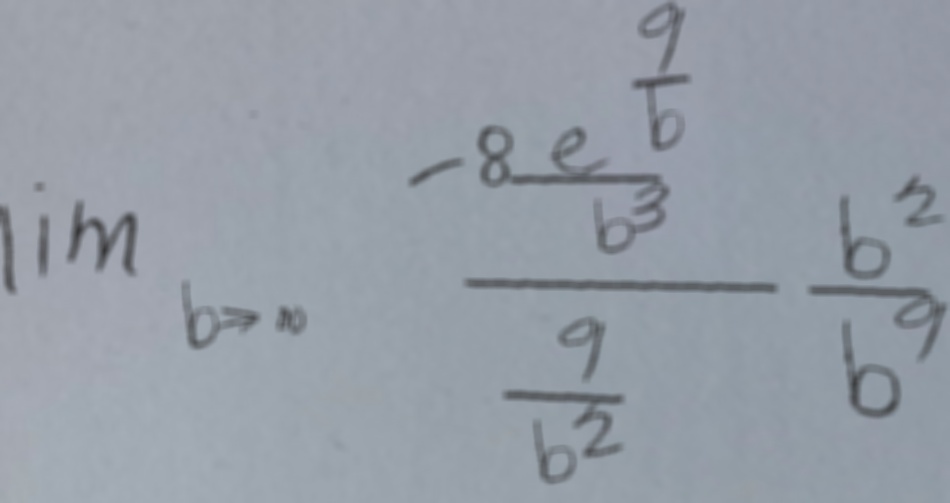 lim b→∞ (-8 e^(9/b) / b³) / (9 / b²) b² / b⁹